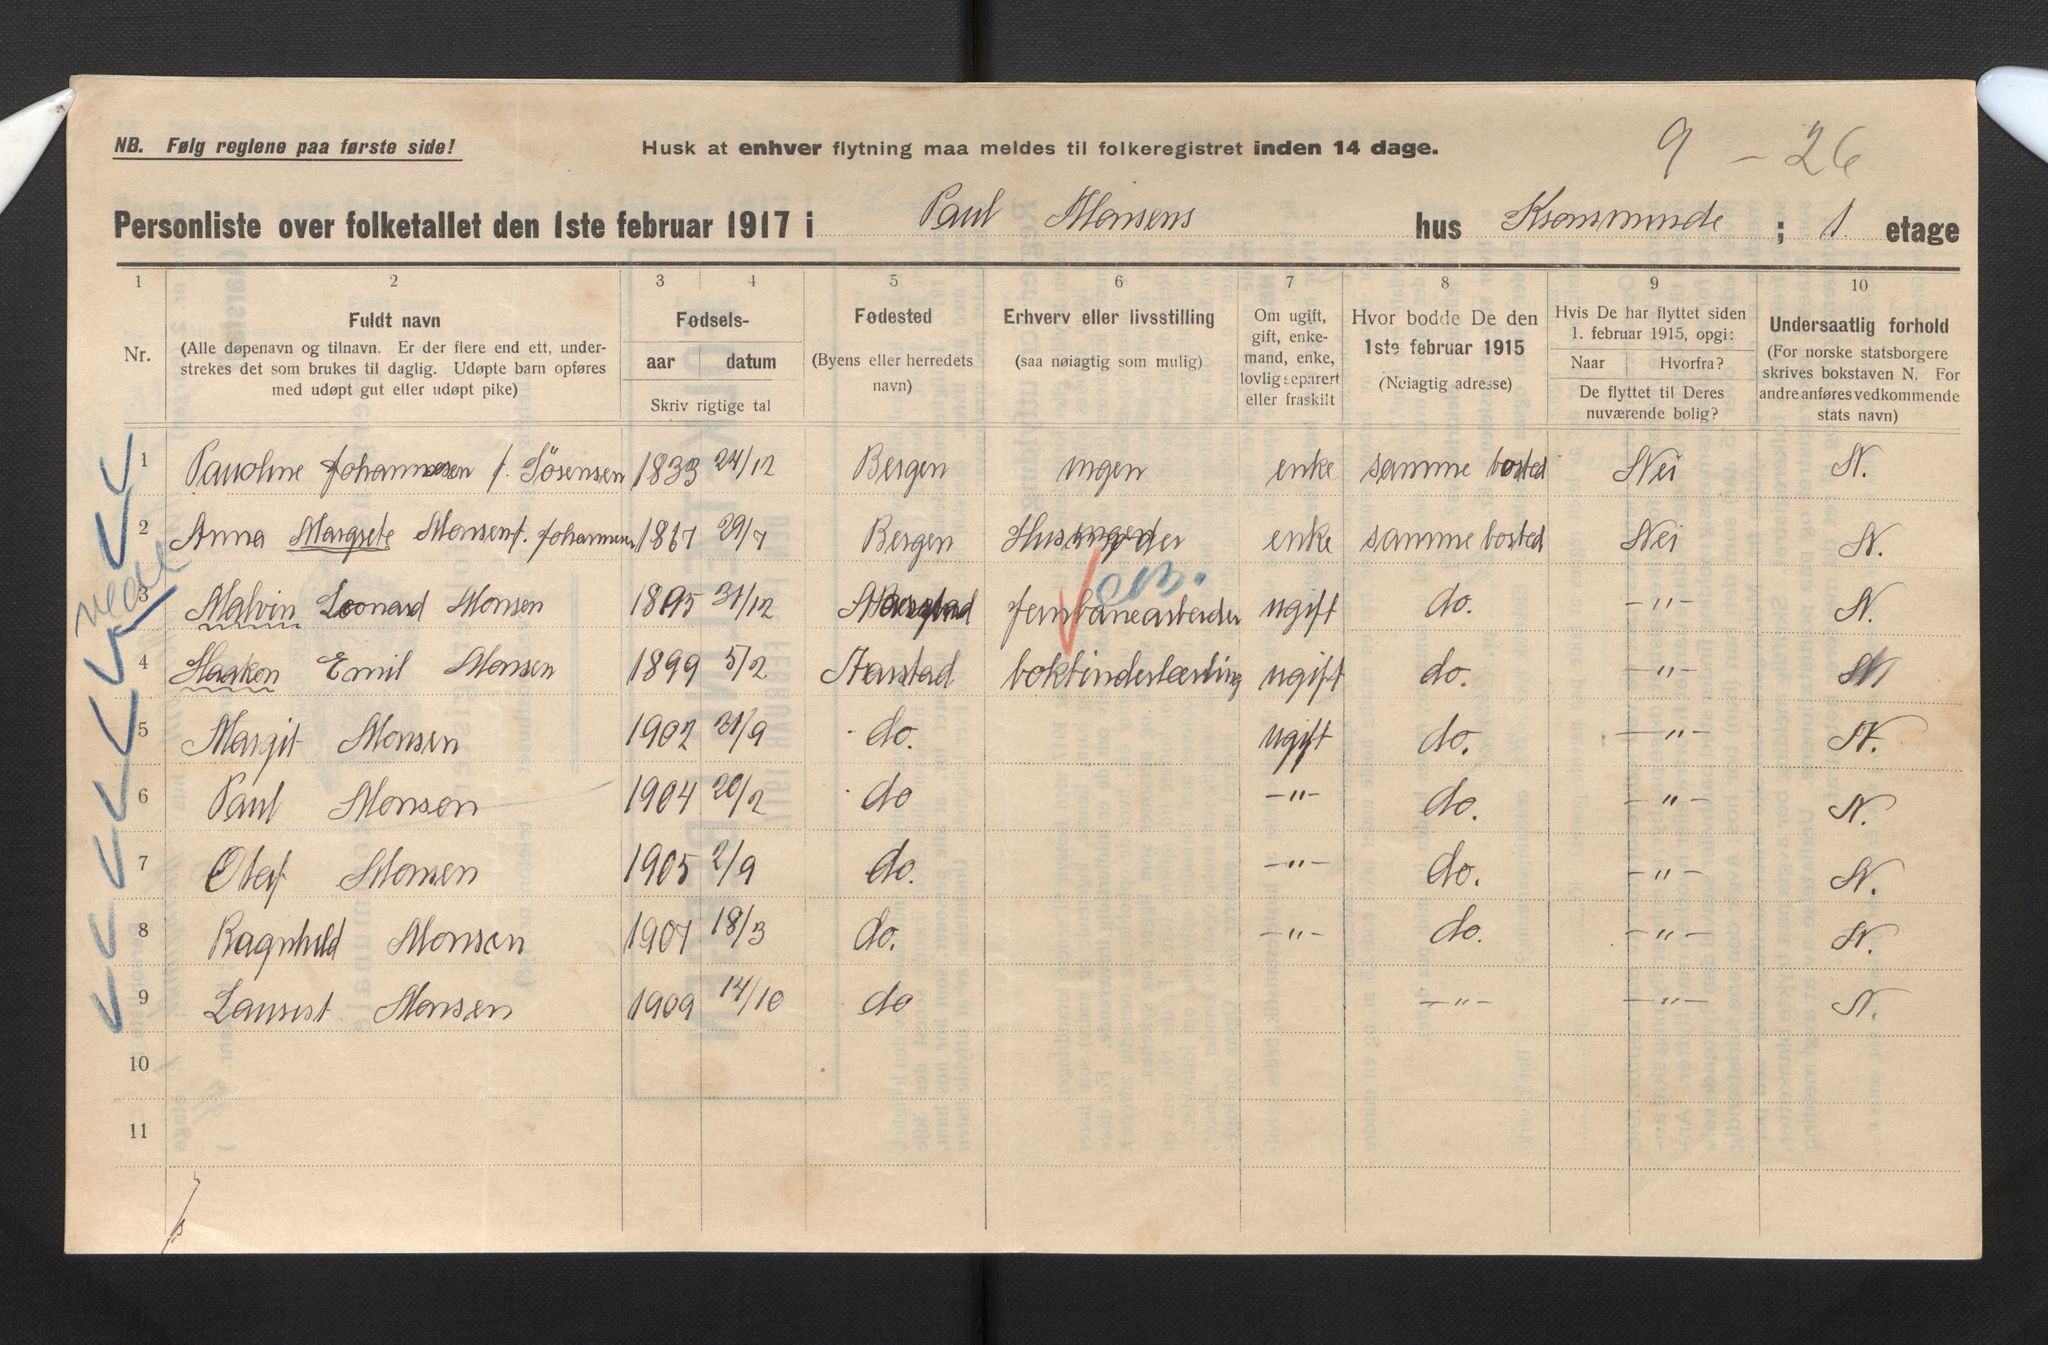 9 - 26
NB. Følg reglene paa første side! Husk at enhver flytning maa meldes til folkeregistret inden 14 dage.
Personliste over folketallet den 1ste februar 1917 i Paul Monsens hus Kronsminde ; 1 etage
1 2 3 4 5 6 7 8 9 10
Nr. Fuldt navn (Alle døpenavn og tilnavn. Er der flere end ett, under-
strekes det som brukes til daglig. Udøpte barn opføres
med udøpt gut eller udøpt pike)
Fødsels-
aar datum
Skriv rigtige tal
Fødested
(Byens eller herredets
navn)
Erhverv eller livsstilling
(saa nøiagtig som mulig)
Om ugift,
gift, enke-
mand, enke,
lovlig separert
eller fraskilt
Hvor bodde De den
1ste februar 1915
(Nøiagtig adresse)
Hvis De har flyttet siden
1. februar 1915, opgi:
Naar Hvorfra?
De flyttet til Deres
nuværende bolig?
Undersaatlig forhold
(For norske statsborgere
skrives bokstaven N. For
andre anføres vedkommende
stats navn)
1 Pauline Johannesen f. Sørensen 1833 24/12 Bergen ingen enke samme bosted Nei N.
2 Anna Margrete Monsen f. Johannesen 1867 29/7 Bergen enke samme bosted Nei N.
3 Malvin Leonard Monsen 1895 31/12 jernbanearbeider ugift do. -"- N.
4 Haakon Emil Monsen 1899 5/2 Aarstad bokbinderlærling ugift do. -"- N
5 Margit Monsen 1902 21/9 do. ugift do. -"- N.
6 Paul Monsen 1904 20/2 do -"- do. -"- N.
7 Olaf Monsen 1905 2/9 do. -"- do. -"- N.
8 Ragnhild Monsen 1907 18/3 do. -"- do. -"- N.
9 Laurist Monsen 1909 14/10 do -"- -"- N.
10
11